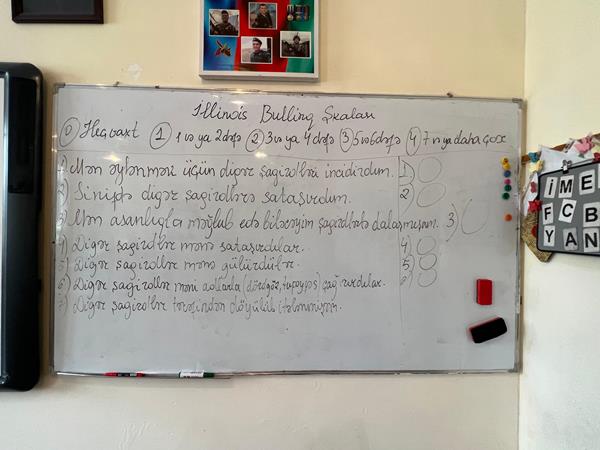 Illinois Bulling Şkalası
0 Heç vaxt 1 1 və ya 2 dəfə 2 3 və ya 4 dəfə 3 5 və 6 dəfə 4 7 və ya daha çox
1) Mən əylənmək üçün digər şagirdləri incidirdim. 1)
2) Sinifdə digər şagirdlərə sataşırdım. 2
3) Mən asanlıqla məğlub edə biləcəyim şagirdlərlə dalaşmışam. 3)
4) Digər şagirdlər mənə sataşırdılar. 4)
5) Digər şagirdlər mənə gülürdülər. 5)
6) Digər şagirdlər məni adlarla (dördgöz, ) çağırırdılar. 6)
7) Digər şagirdlər tərəfindən döyülüb itələnmişəm.
İ M E
F C B
Y A N